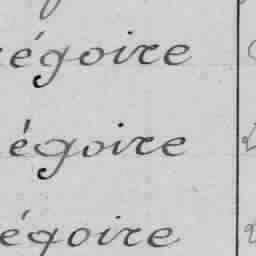 régoire
égoire
égoire